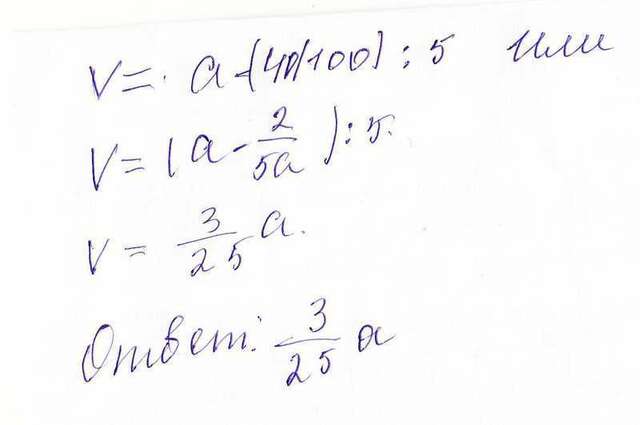 V = a-(40/100) : 5 или
V = (a - 2/5a) : 5.
V = 3/25 a.
Ответ: 3/25 a